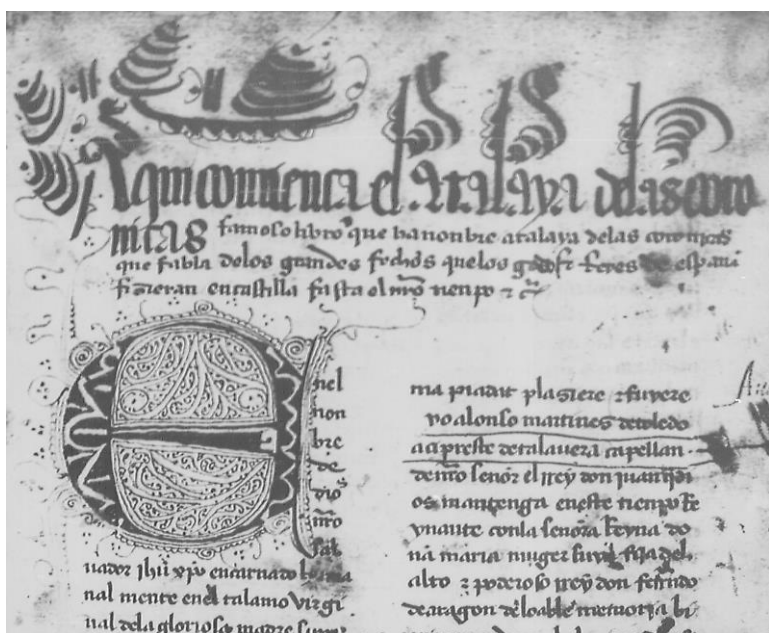 Aqui comiença el atalaya delas coro
nicas famoso libro que ha nonbre atalaya delas coronicas
que fabla delos grandes fechos quelos godos reyes de españa
fizieran en castilla fasta el nro tienpo
Enel
non
bre
de
dios
nro
sal
uador ihu xpo encarnado
nal mente enel talamo virgi
nal dela gloriosa madre
ma piadat plaziere
yo alonso martines de toledo
açipreste de talauera capellan
de nro señor el rrey don juan
os mantenga en este tienpo rre
ynante conla señora rreyna do
ña maria muger suya fija del
alto z poderoso rrey don ferrndo
de aragon de loable memoria bi